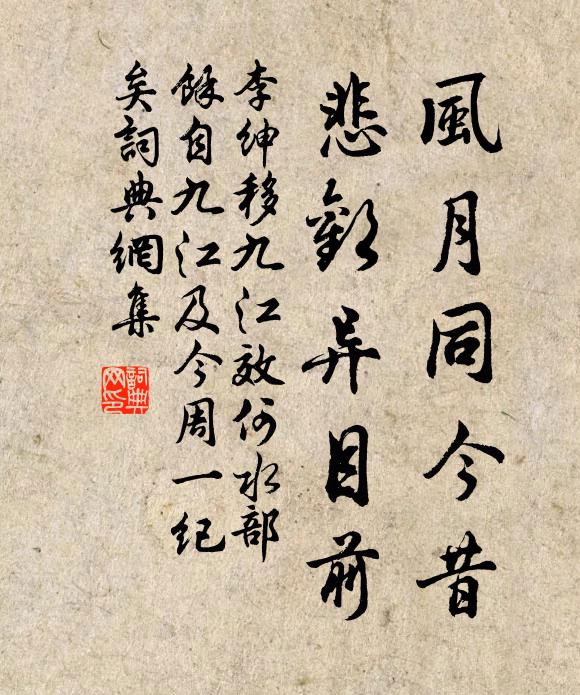 風月同今昔
悲歡异目前
李紳移九江效何水部
餘自九江及今周一纪
矣詞典網集
詞典网印